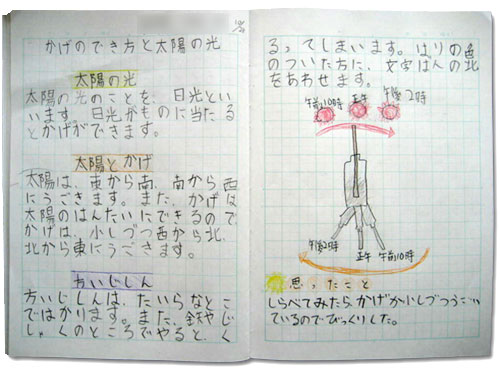 かげのでき方と太陽の光
太陽の光
太陽の光のことを、日光とい
います。日光がものに当たる
とかげができます。
太陽とかげ
太陽は、東から南、南から西
にうごきます。また、かげは
太陽のはんたいにできるので
かげは、少しづつ西から北、
北から東にうごきます。
ちいじしん
方いじしんは、たいらなとこ
ではかります。また、鉄やじ
しゃくのところでやると、く
るってしまいます。はりの色
のついた方に、文字はんの北
をあわせます。
午前10時 正午 午後2時
午後2時 正午 午前10時
思ったこと
しらべてみたらかげが少しづつうごい
ているのでびっくりした。